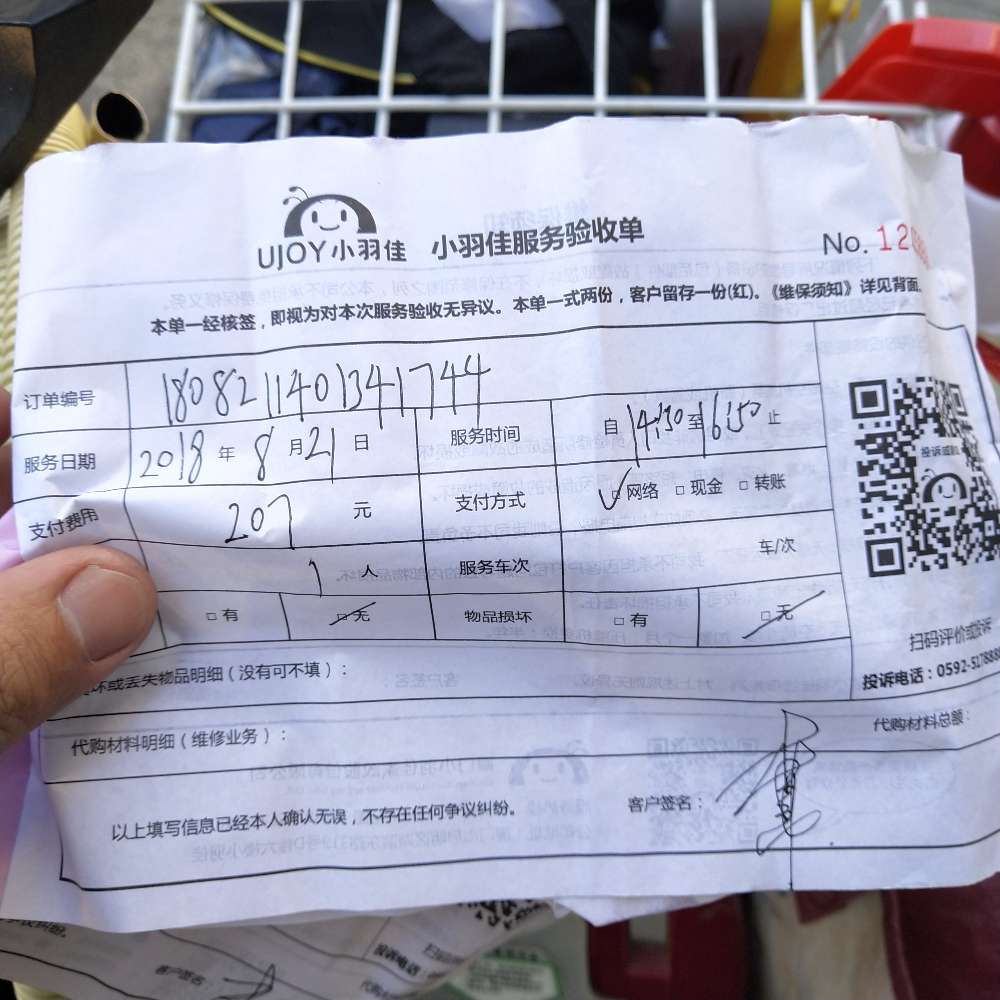 UJOY小羽佳 小羽佳服务验收单 No. 12
本单一经核签，即视为对本次服务验收无异议。本单一式两份，客户留存一份(红)。《维保须知》详见背面。
订单编号 1808211401341744
服务日期 2018 年 8 月 21 日 服务时间 自 14:30 至 16:50 止
支付费用 207 元 支付方式 □网络 □现金 □转账
1 人 服务车次 车/次
□有 □无 物品损坏 □有 □无
坏或丢失物品明细（没有可不填）：
扫码评价或投诉
投诉电话：0592-5178888
代购材料明细（维修业务）： 代购材料总额：
以上填写信息已经本人确认无误，不存在任何争议纠纷。 客户签名：
纠纷。
客户签名：
投诉电话